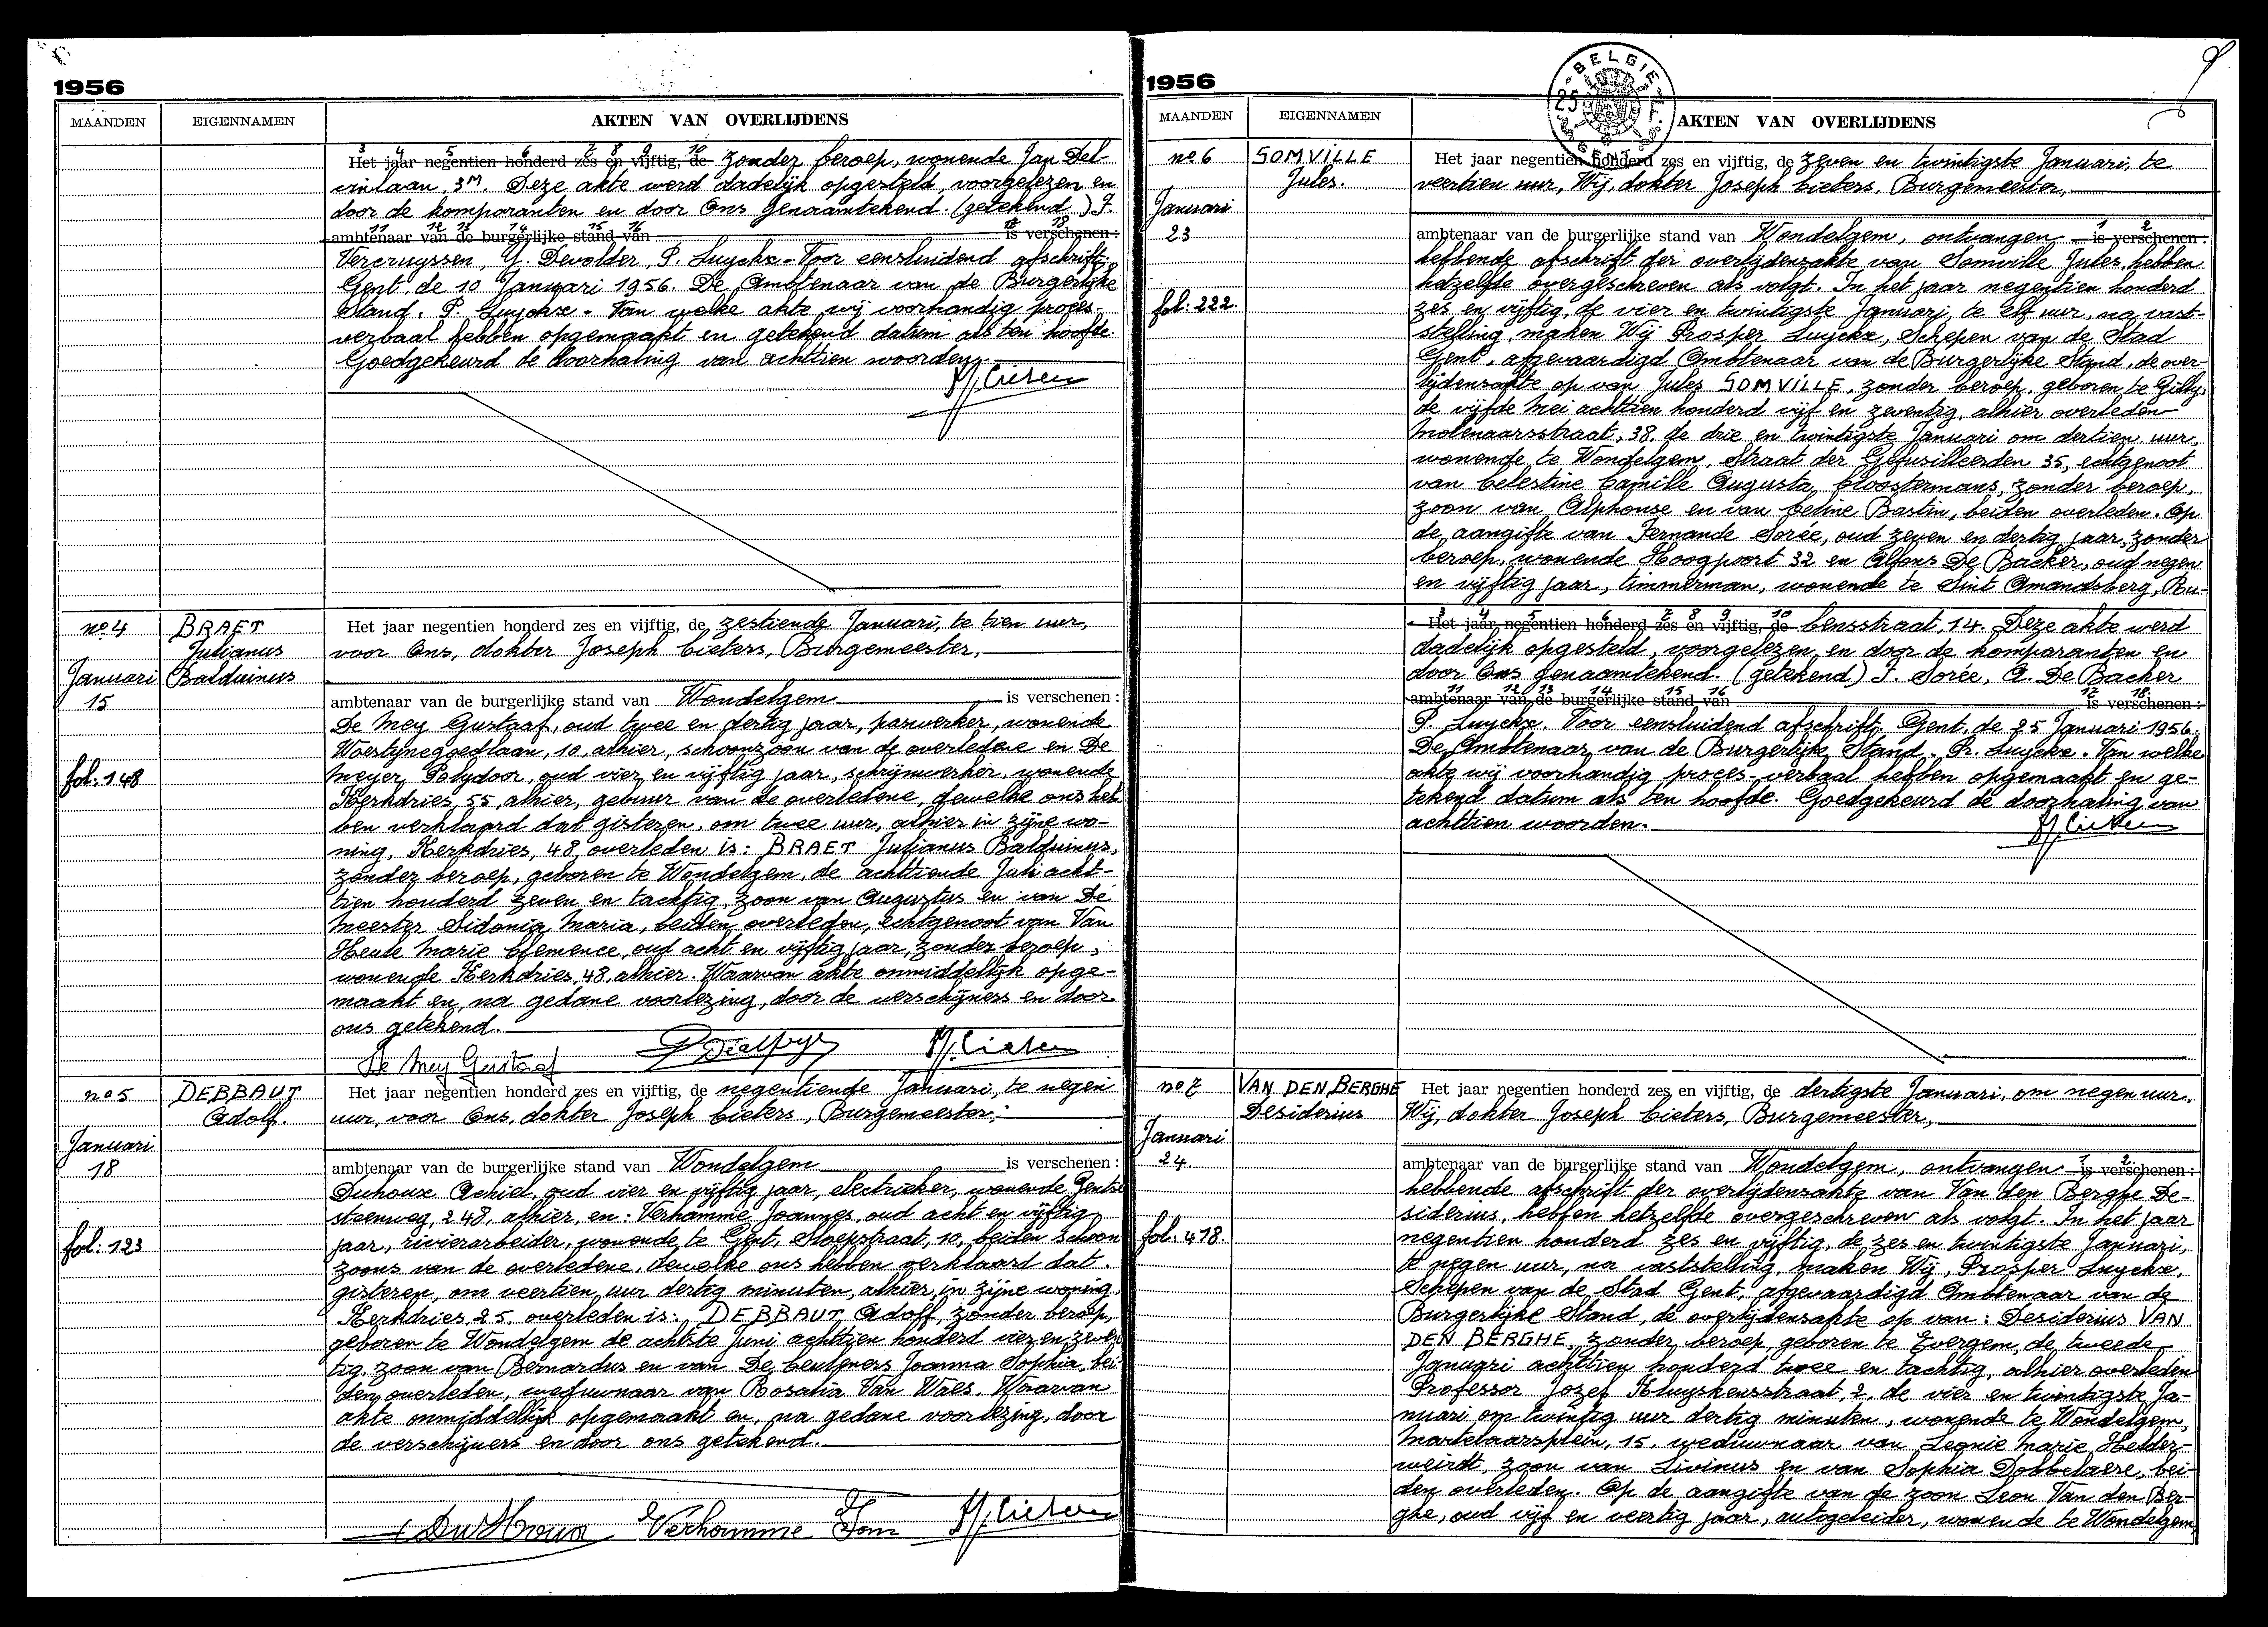 1956
MAANDEN EIGENNAMEN AKTEN VAN OVERLIJDENS
3 4 5 6 7 8 9 10
Het jaar negentien honderd zes en vijftig, de zonder beroep, wonende Jan Del-
vinlaan, 3M. Deze akte werd dadelijk opgesteld, voorgelezen en
door de komparanten en door Ons genaamtekend. (getekend) J.
11 12 13 14 15 16 17 18
ambtenaar van de burgerlijke stand van is verschenen:
Vercruyssen, Y. Devolder, P. Luyckx - Voor eensluidend afschrift,
Gent, de 10 Januari 1956. De Ambtenaar van de Burgerlijke
Stand, P. Luyckx - Van welke akte wij voorhandig proces-
verbaal hebben opgemaakt en getekend datum als ten hoofde.
Goedgekeurd de doorhaling van achttien woorden.
J. Cieters
no 4 BRAET Het jaar negentien honderd zes en vijftig, de zestiende Januari, te tien uur,
Julianus voor Ons, dokter Joseph Cieters, Burgemeester,
Januari Balduinus
15 ambtenaar van de burgerlijke stand van Wondelgem is verschenen:
De Mey Gustaaf, oud twee en dertig jaar, paswerker, wonende
Woestijnegoedlaan, 10, alhier, schoonzoon van de overledene en De
fol. 148 Meyer Polydoor, oud vier en vijftig jaar, schrijnwerker, wonende
Kerkdries, 55, alhier, gebuur van de overledene, dewelke ons heb
ben verklaard dat gisteren, om twee uur, alhier in zijne wo-
ning, Kerkdries, 48, overleden is: BRAET Julianus Balduinus,
zonder beroep, geboren te Wondelgem, de achttiende Juli acht-
tien honderd zeven en tachtig, zoon van Augustus en van De
Meester Sidonia Maria, beiden overleden, echtgenoot van Van
Heule Marie Clemence, oud acht en vijftig jaar, zonder beroep,
wonende Kerkdries, 48, alhier. Waarvan akte onmiddellijk opge-
maakt en, na gedane voorlezing, door de verschijners en door
ons getekend.
De Mey Gustaaf J. Cieters
no 5 DEBBAUT Het jaar negentien honderd zes en vijftig, de negentiende Januari, te negen
Adolf. uur, voor Ons, dokter Joseph Cieters, Burgemeester,
Januari
18 ambtenaar van de burgerlijke stand van Wondelgem is verschenen:
Duhoux Achiel, oud vier en vijftig jaar, electrieker, wonende Gentse
steenweg, 248, alhier, en: Verhamme Joannes, oud acht en vijftig
fol. 123 jaar, rivierarbeider, wonende te Gent, Stoepstraat, 10, beiden schoon
zoons van de overledene, dewelke ons hebben verklaard dat
gisteren, om veertien uur dertig minuten, alhier, in zijne woning
Kerkdries 25, overleden is: DEBBAUT Adolf, zonder beroep,
geboren te Wondelgem de achtste Juni achttien honderd vier en zeven
tig, zoon van Bernardus en van De Ceuteners Joanna Sophia, bei-
den overleden, weduwnaar van Rosalia Van Waes. Waarvan
akte onmiddellijk opgemaakt en, na gedane voorlezing, door
de verschijners en door ons getekend.
Duhoux Verhamme Jan J. Cieters
1956
BELGIE 25 F.
MAANDEN EIGENNAMEN AKTEN VAN OVERLIJDENS
no 6 SOMVILLE Het jaar negentien honderd zes en vijftig, de zeven en twintigste Januari, te
Jules. veertien uur, Wij, dokter Joseph Cieters, Burgemeester,
Januari
1 2
23 ambtenaar van de burgerlijke stand van Wondelgem, ontvangen is verschenen:
hebbende afschrift der overlijdensakte van Somville Jules, hebben
hetzelfde overgeschreven als volgt. In het jaar negentien honderd
fol. 222. zes en vijftig, de vier en twintigste Januari, te elf uur, na vast-
stelling, maken Wij Prosper Luyckx, Schepen van de Stad
Gent, afgevaardigd Ambtenaar van de Burgerlijke Stand, de over-
lijdensakte op van Jules SOMVILLE, zonder beroep, geboren te Gilly,
de vijfde Mei achttien honderd vijf en zeventig, alhier overleden
Molenaarsstraat, 38, de drie en twintigste Januari om dertien uur,
wonende te Wondelgem, Straat der Gefusilleerden 35, echtgenoot
van Celestine Camille Augusta Cloostermans, zonder beroep,
zoon van Alphonse en van Celine Bastin, beiden overleden. Op
de aangifte van Fernande Sorée, oud zeven en dertig jaar, zonder
beroep, wonende Hoogpoort 32 en Alfons De Backer, oud negen
en vijftig jaar, timmerman, wonende te Sint Amandsberg, Ru-
3 4 5 6 7 8 9 10
Het jaar negentien honderd zes en vijftig, de bensstraat, 14. Deze akte werd
dadelijk opgesteld, voorgelezen en door de komparanten en
door Ons genaamtekend. (getekend) F. Sorée, A. De Backer
11 12 13 14 15 16 17 18
ambtenaar van de burgerlijke stand van is verschenen:
P. Luyckx. Voor eensluidend afschrift, Gent, de 25 Januari 1956.
De Ambtenaar van de Burgerlijke Stand, Pr. Luyckx. Van welke
akte wij voorhandig proces-verbaal hebben opgemaakt en ge-
tekend datum als ten hoofde. Goedgekeurd de doorhaling van
achttien woorden.
J. Cieters
no 7 VAN DEN BERGHE Het jaar negentien honderd zes en vijftig, de dertigste Januari, om negen uur,
Desiderius Wij, dokter Joseph Cieters, Burgemeester,
Januari
1 2
24 ambtenaar van de burgerlijke stand van Wondelgem, ontvangen is verschenen:
hebbende afschrift der overlijdensakte van Van den Berghe De-
siderius, hebben hetzelfde overgeschreven als volgt. In het jaar
fol. 418. negentien honderd zes en vijftig, de zes en twintigste Januari,
te negen uur, na vaststelling, maken Wij, Prosper Luyckx,
Schepen van de Stad Gent, afgevaardigd Ambtenaar van de
Burgerlijke Stand, de overlijdensakte op van: Desiderius VAN
DEN BERGHE, zonder beroep, geboren te Evergem, de tweede
Januari achttien honderd twee en tachtig, alhier overleden
Professor Jozef Kluyskensstraat, 2, de vier en twintigste Ja-
nuari om twintig uur dertig minuten, wonende te Wondelgem,
Martelaarsplein, 15, weduwnaar van Leonie Marie Helder-
weirdt, zoon van Livinus en van Sophia Dobbelaere, bei-
den overleden. Op de aangifte van de zoon Leon Van den Ber-
ghe, oud vijf en veertig jaar, autogeleider, wonende te Wondelgem,